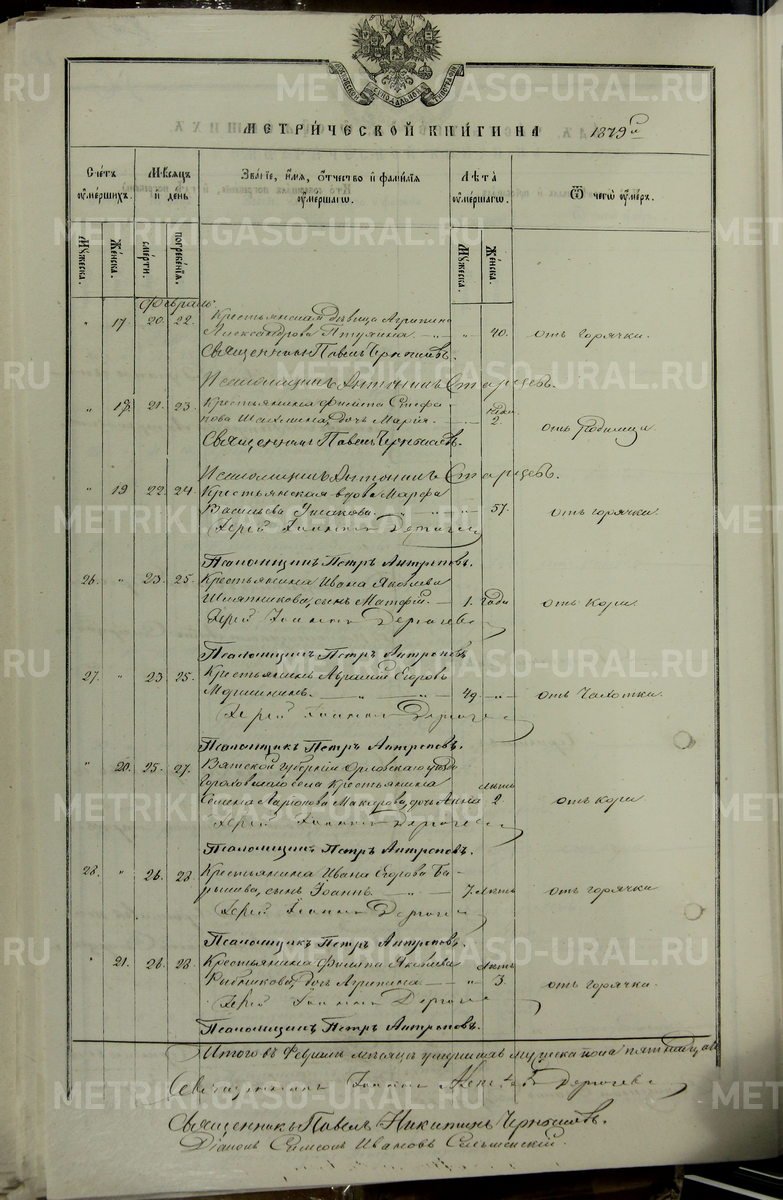 МЕТРИЧЕСКОЙ КНИГИ НА 1879 й
Счетъ оумершихъ.
Мѣсяцъ и день
Званіе, имя, отчество и фамилія оумершагѡ.
Лѣта оумершагѡ.
Ѿ чегѡ оумеръ.
Мужеска.
Женска.
смерти.
погребенія.
Мужеска.
Женска.
Февраль
" 17 20. 22. Крестьянская дѣвица Агрипина
Александрова " 40. отъ горячки.
Священникъ Павелъ Чернышевъ.
Псаломщикъ Антонинъ Старцевъ.
" 18. 21. 23. Крестьянина Филипа Стефа-
нова дочь Марія. 2. отъ родимца
Священникъ Павелъ Чернышевъ.
Псаломщикъ Антонинъ Старцевъ.
" 19 22. 24. Крестьянская вдова Марфа
Васильева " " 57. отъ горячки.
Іерей Іоаннъ Дерягевъ
Псаломщикъ Петръ Антроповъ.
26. " 23. 25. Крестьянина Ивана Яковлева
Шляпникова, сынъ Матфій. 1. года отъ кори.
Іерей Іоаннъ Дерягевъ
Псаломщикъ Петръ Антроповъ
27. " 23 25. Крестьянинъ Аврамій Егоровъ
" " 49. " отъ чахотки.
Іерей Іоаннъ Дерягевъ
Псаломщикъ Петръ Антроповъ.
" 20. 25. 27. Вятской губерніи Орловскаго уѣзда
села Крестьянина
Семена Ларіонова Макарова, дочь Анна лѣтъ 2. отъ кори
Іерей Іоаннъ Дерягевъ
Псаломщикъ Петръ Антроповъ.
28. " 26. 28 Крестьянина Ивана Егорова Ба-
рышева, сынъ Іоаннъ. " 7. лѣтъ отъ горячки
Іерей Іоаннъ Дерягевъ
Псаломщикъ Петръ Антроповъ.
" 21. 26. 28. Крестьянина Филипа Яковлева
Рыбникова, дочь Агрипина " лѣтъ 3. отъ горячки.
Іерей Іоаннъ Дерягевъ
Псаломщикъ Петръ Антроповъ.
Итого въ Февралѣ мѣсяцѣ умершихъ мужеска пола пятнадцать
Священникъ Іоаннъ Дерягевъ
Священникъ Павелъ Никитинъ Чернышевъ.
Діаконъ Симеонъ Ивановъ
METRIKI.GASO-URAL.RU